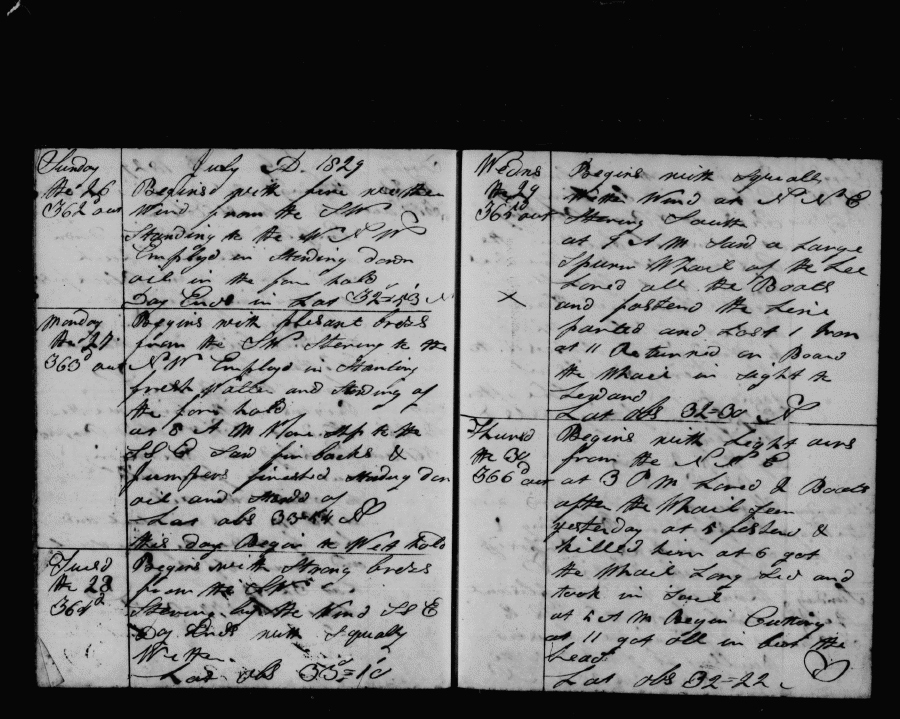 July AD. 1829
Sunday
the 26
362d out
Begins with fine weather
Wind from the SW
Standing to the N N W
Employd in Stowing down
oil in the fore hold
Day Ends in Lat 32=43 N
Monday
the 27
363d out
Begins with plesant brees
from the SW Stering to the
N W Employd in Starting
fresh Watter and Stowing of
the fore hold
at 8 A M to the
SS E Saw finbacks &
Jumpers finished Stowing don
oil and
Lat obs 33=44 N
this day Begin to Wet hold
Tuesd
the 28
364d
Begins with Strong brees
from the SW
Stering by the Wind SS E
Day Ends with Squally
Wether
Lat obs 33=10
Wedns
the 29
365d out
Begins with Squalls
Wether Wind at N N E
Stering South
at A M Saw a Large
Spurm Whail of the Lee
Lored all the Boats
and fastend the Line
parted and Lost 1 Iron
at 11 Returned on Board
the Whail in sight to
Leward
Lat obs 32=30 N
Thursd
the 30
366d out
Begins with Light airs
from the N N E
at 3 P M Lored 2 Boats
after the Whail Seen
yesterday at 5 fastend &
killed him at 6 got
the Whail Long Sid and
took in Sail
at 5 A M Began Cutting
at 11 got all in but the
head
Lat obs 32=22